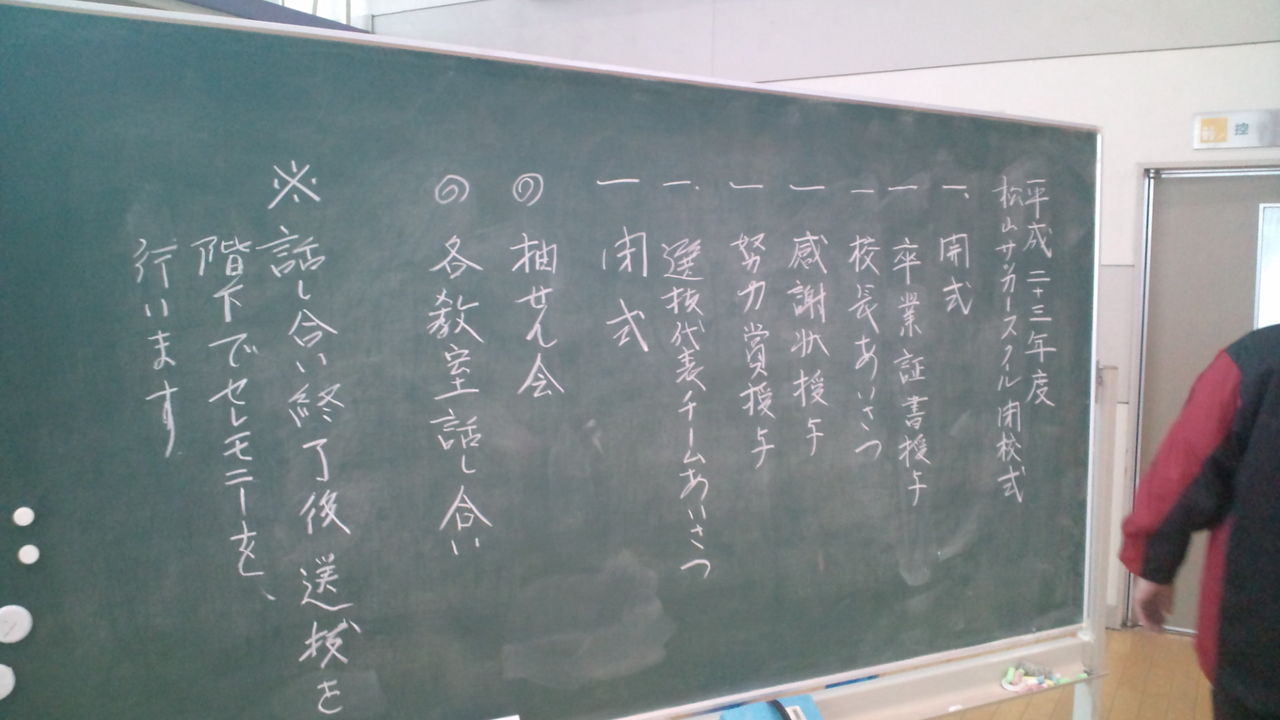 平成二十三年度
松山サッカースクール閉校式
一、開式
一 卒業証書授与
一 校長あいさつ
一 感謝状授与
一 努力賞授与
一、選抜代表チームあいさつ
一 閉式
◎ 抽せん会
◎ 各教室話し合い
※ 話し合い終了後 選抜を
階下でセレモニーを、
行います
控